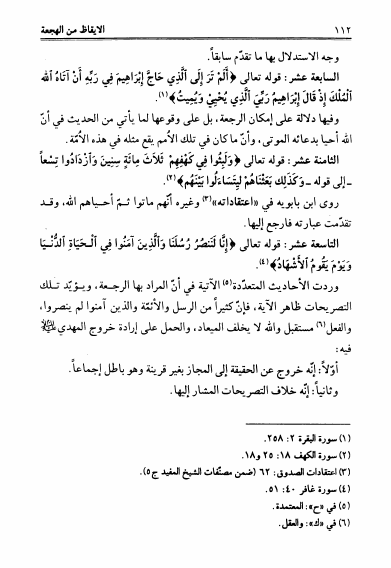 ١١٢ الايقاظ من الهجعة
وجه الاستدلال بها ما تقدم سابقاً.
السابعة عشر: قوله تعالى ﴿أَلَمْ تَرَ إِلَى ٱلَّذِي حَاجَّ إِبْرَاهِيمَ فِي رَبِّهِ أَنْ آتَاهُ ٱللهُ
ٱلْمُلْكَ إِذْ قَالَ إِبْرَاهِيمُ رَبِّيَ ٱلَّذِي يُحْيِيْ وَيُمِيتُ﴾(١).
وفيها دلالة على إمكان الرجعة، بل على وقوعها لما يأتي من الحديث في أنّ
الله أحيا بدعائه الموتى، وأنّ ما كان في تلك الأمم يقع مثله في هذه الأمّة.
الثامنة عشر: قوله تعالى ﴿وَلَبِثُوا فِي كَهْفِهِمْ ثَلَاثَ مِائَةٍ سِنِينَ وَٱزْدَادُوا تِسْعاً
ـ إلى قوله ـ وَكَذَلِكَ بَعَثْنَاهُمْ لِيَتَسَاءَلُوا بَيْنَهُمْ﴾(٢).
روى ابن بابويه في «اعتقاداته»(٣) وغيره أنّهم ماتوا ثـمّ أحيـاهم الله، وقـد
تقدّمت عبارته فارجع إليها.
التاسعة عشر: قوله تعالى ﴿إِنَّا لَنَنْصُرُ رُسُلَنَا وَٱلَّذِينَ آمَنُوا فِي ٱلْحَيَاةِ ٱلدُّنْيَا
وَيَوْمَ يَقُومُ ٱلْأَشْهَادُ﴾(٤).
وردت الأحاديث المتعددة(٥) الآتية في أنّ المراد بها الرجـعة، ويـؤيّد تـلك
التصريحات ظاهر الآية، فإنّ كثيراً من الرسل والأئمّة والذين آمنوا لم ينصروا،
والفعل(٦) مستقبل والله لا يخلف الميعاد، والحمل على إرادة خروج المهدي
فيه:
أوّلاً: إنّه خروج عن الحقيقة إلى المجاز بغير قرينة وهو باطل إجماعاً.
وثانياً: إنّه خلاف التصريحات المشار إليها.
(١) سورة البقرة ٢: ٢٥٨.
(٢) سورة الكهف ١٨: ٢٥ و١٨.
(٣) اعتقادات الصدوق: ٦٢ (ضمن مصنّفات الشيخ المفيد ج٥).
(٤) سورة غافر ٤٠: ٥١.
(٥) في «ح»: المعتمدة.
(٦) في «ك»: والعقل.